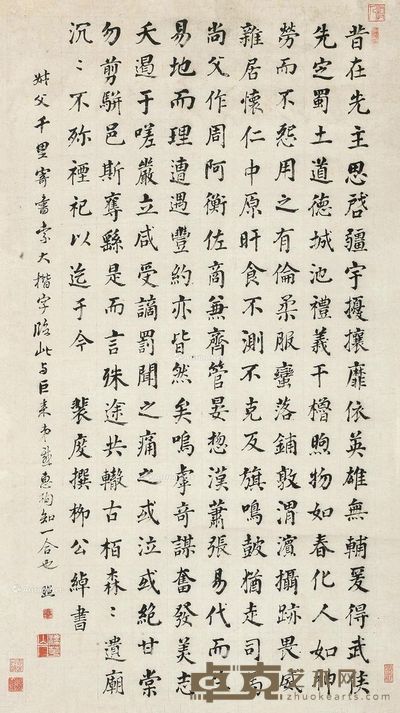 昔在先主思啓疆宇擾攘靡依英雄無輔爰得武侯
先定蜀土道德城池禮義干櫓煦物如春化人如神
勞而不怨用之有倫柔服蠻落鋪敦渭濱攝跡畏威
雜居懷仁中原旰食不測不克反旗鳴鼓猶走司馬
尚父作周阿衡佐商兼齊管晏惣漢蕭張易代而生
易地而理遭遇豐約亦皆然矣嗚虖奇謀奮發美志
夭遏于嗟嚴立咸受謫罰聞之痛之或泣或絕甘棠
勿剪駢邑斯奪繇是而言殊途共轍古栢森〻遺廟
沉〻不殄禋祀以迄于今 裴度撰柳公綽書
叔父千里寄書索大楷字臨此与巨來 知一合也 照
卓克艺术网
www.zhuokearts.com